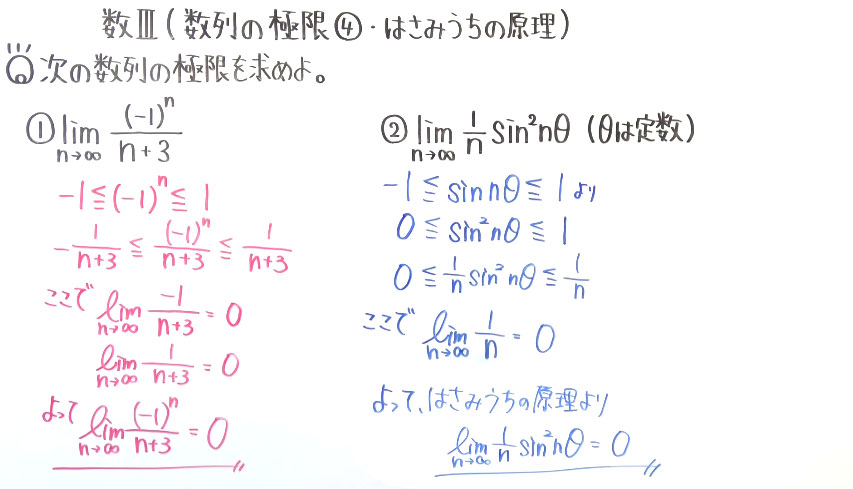 数Ⅲ(数列の極限④・はさみうちの原理)
次の数列の極限を求めよ。
① lim_{n→∞} (-1)^n/(n+3)
-1 ≦ (-1)^n ≦ 1
-1/(n+3) ≦ (-1)^n/(n+3) ≦ 1/(n+3)
ここで lim_{n→∞} -1/(n+3) = 0
lim_{n→∞} 1/(n+3) = 0
よって lim_{n→∞} (-1)^n/(n+3) = 0
② lim_{n→∞} 1/n sin²nθ (θは定数)
-1 ≦ sin nθ ≦ 1 より
0 ≦ sin²nθ ≦ 1
0 ≦ 1/n sin²nθ ≦ 1/n
ここで lim_{n→∞} 1/n = 0
よって、はさみうちの原理より
lim_{n→∞} 1/n sin²nθ = 0